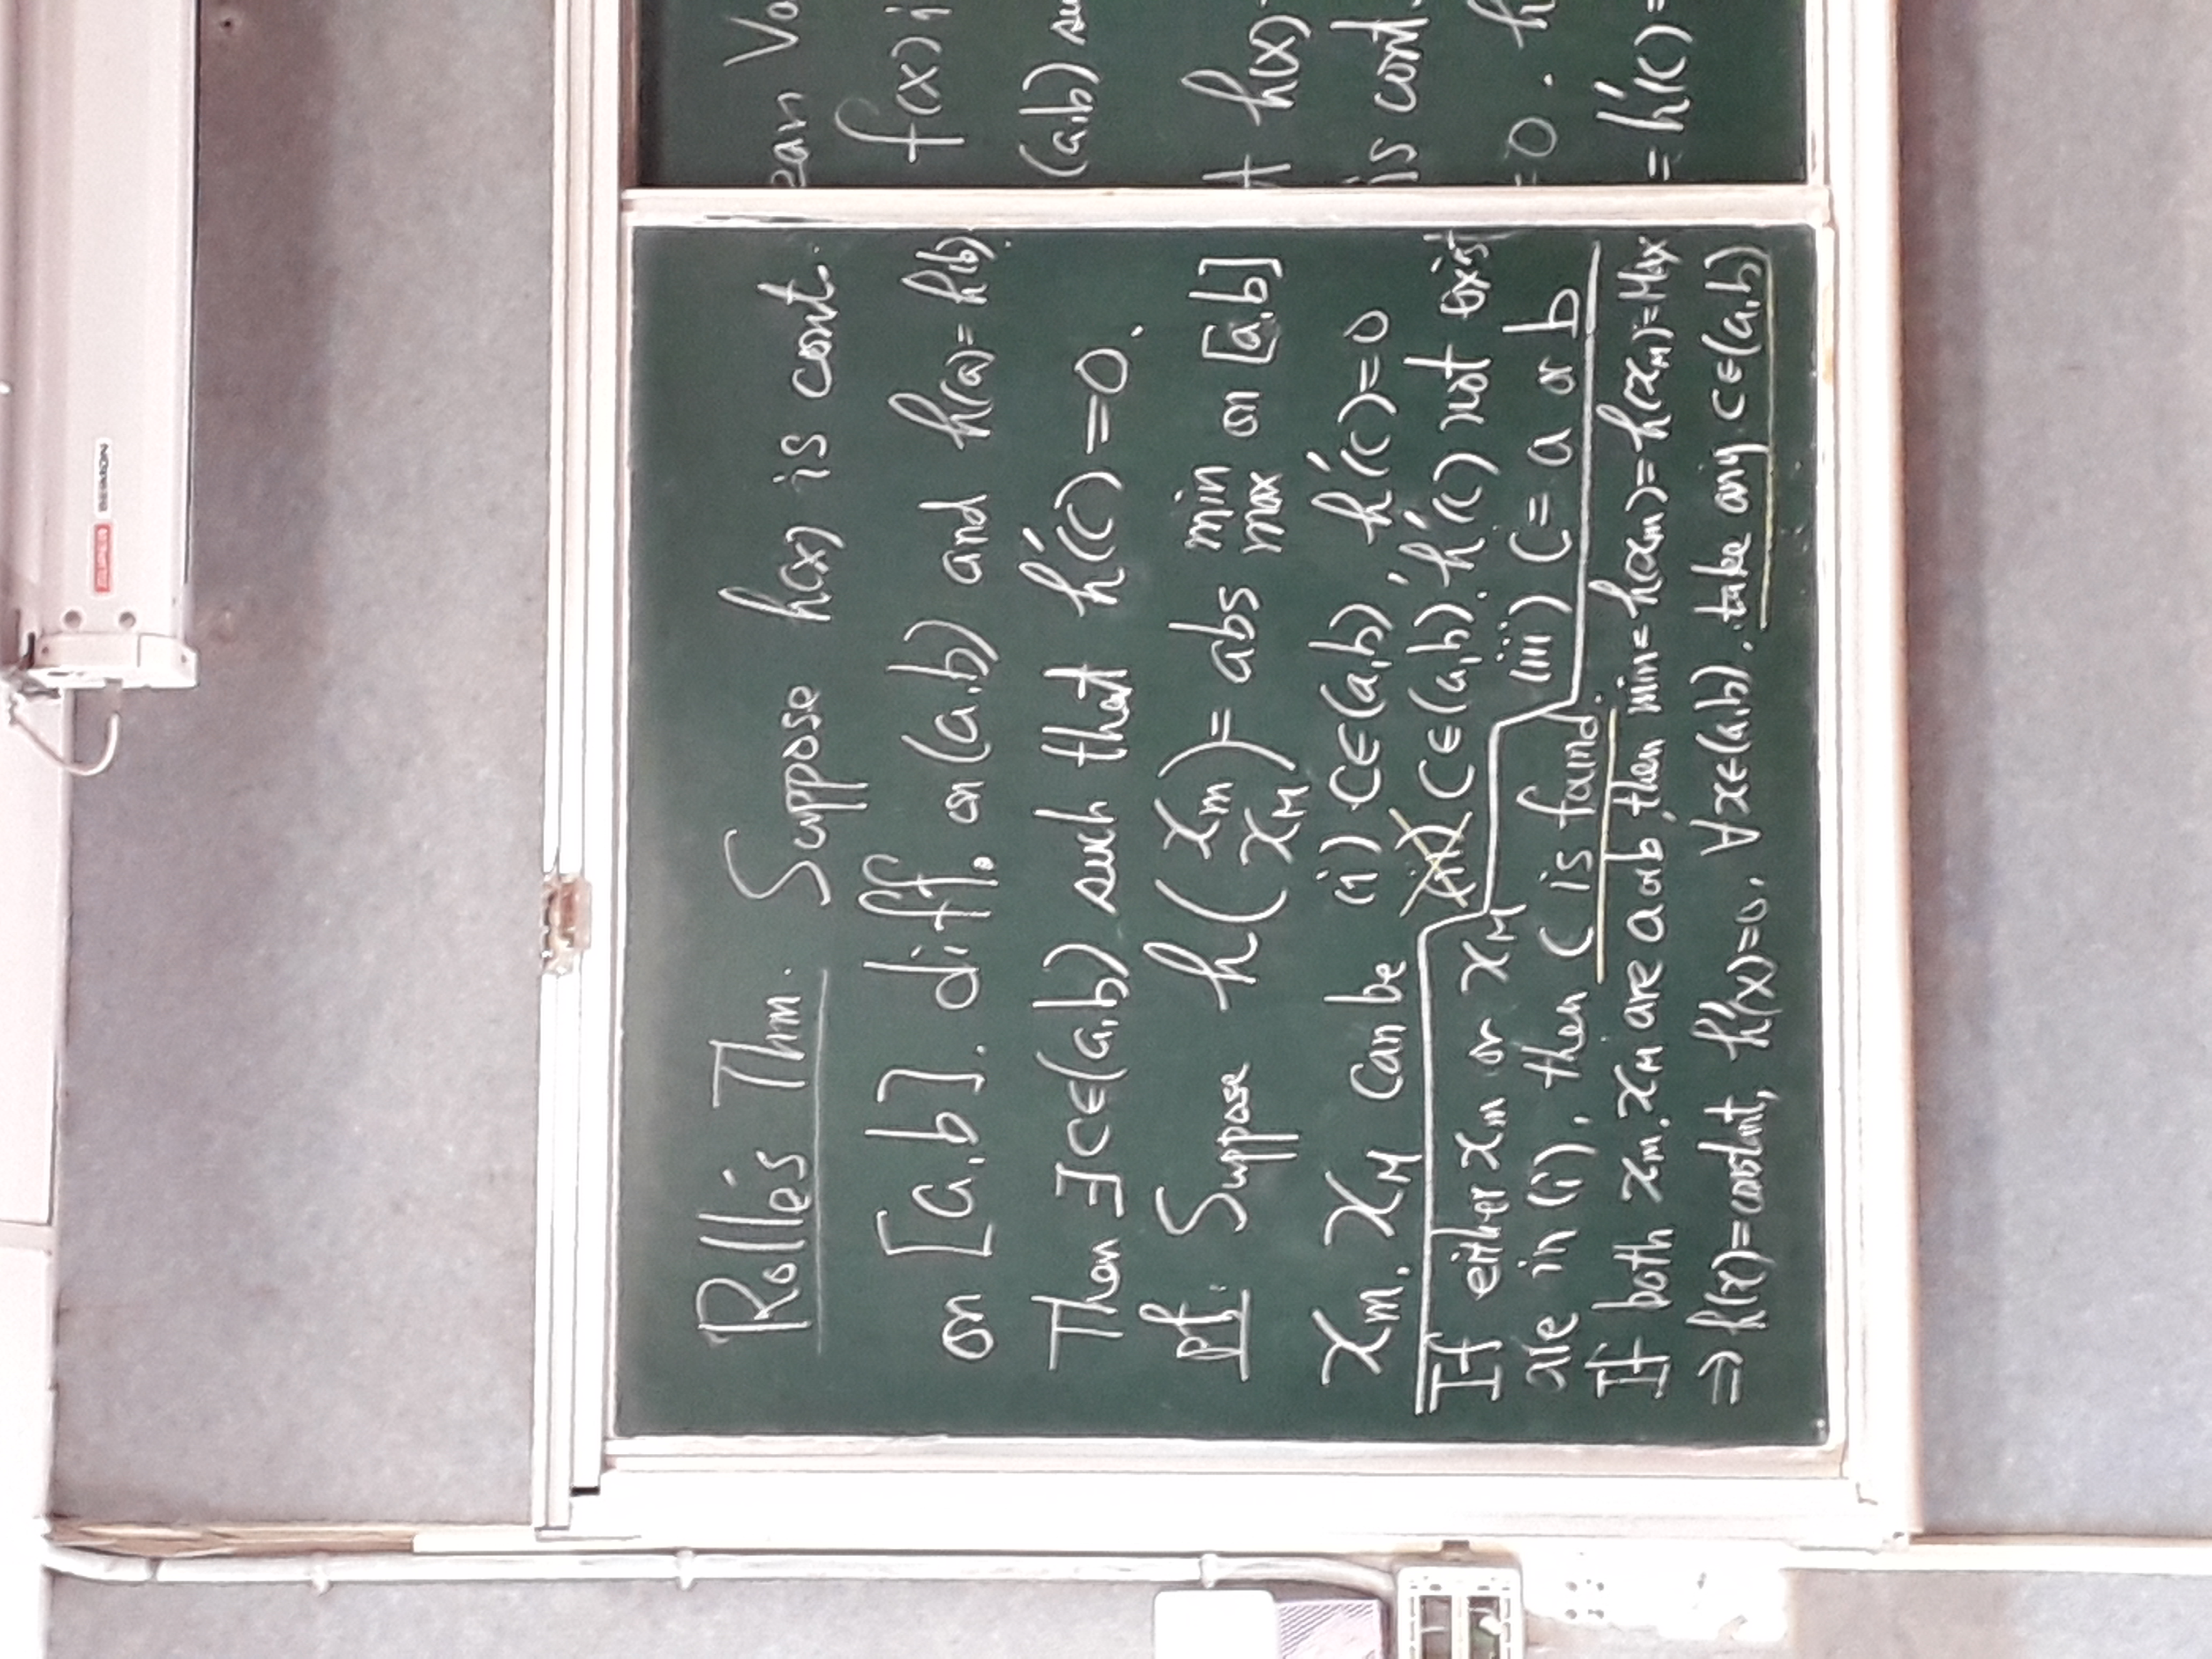 Rolle's Thm. Suppose h(x) is cont.
on [a,b]. diff. on (a,b) and h(a)=h(b).
Then ∃c∈(a,b) such that h'(c)=0.
pf. Suppose h(xm xM) = abs min max on [a,b]
xm, xM can be (i) c∈(a,b), h'(c)=0
(ii) c∈(a,b). h'(c) not exist
(iii) c = a or b
If either xm or xM
are in (i), then c is found.
If both xm, xM are a or b, then min=h(xm)=h(xM)=Max
⇒ h(x)=constant, h'(x)=0, ∀x∈(a,b). take any c∈(a,b)
f(x)
(a,b)
h(x)
is cont.
=0. h
=h'(c)=